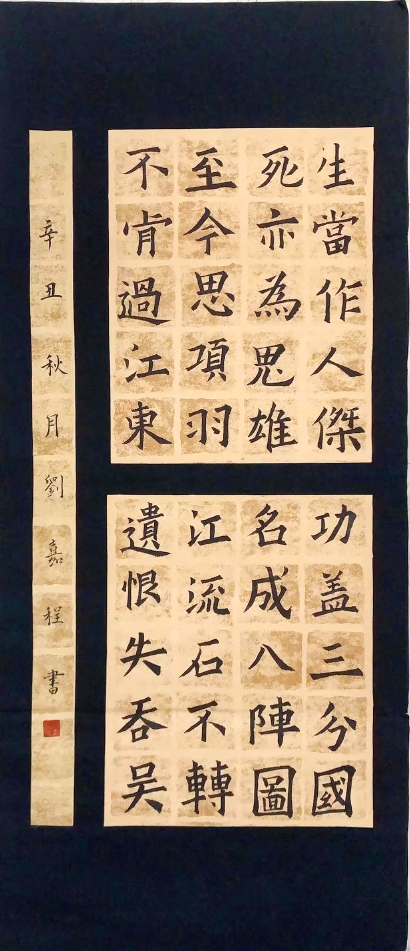 生當作人傑
死亦為鬼雄
至今思項羽
不肯過江東
功盖三分國
名成八陣圖
江流石不轉
遺恨失吞吴
辛丑秋月劉嘉程書